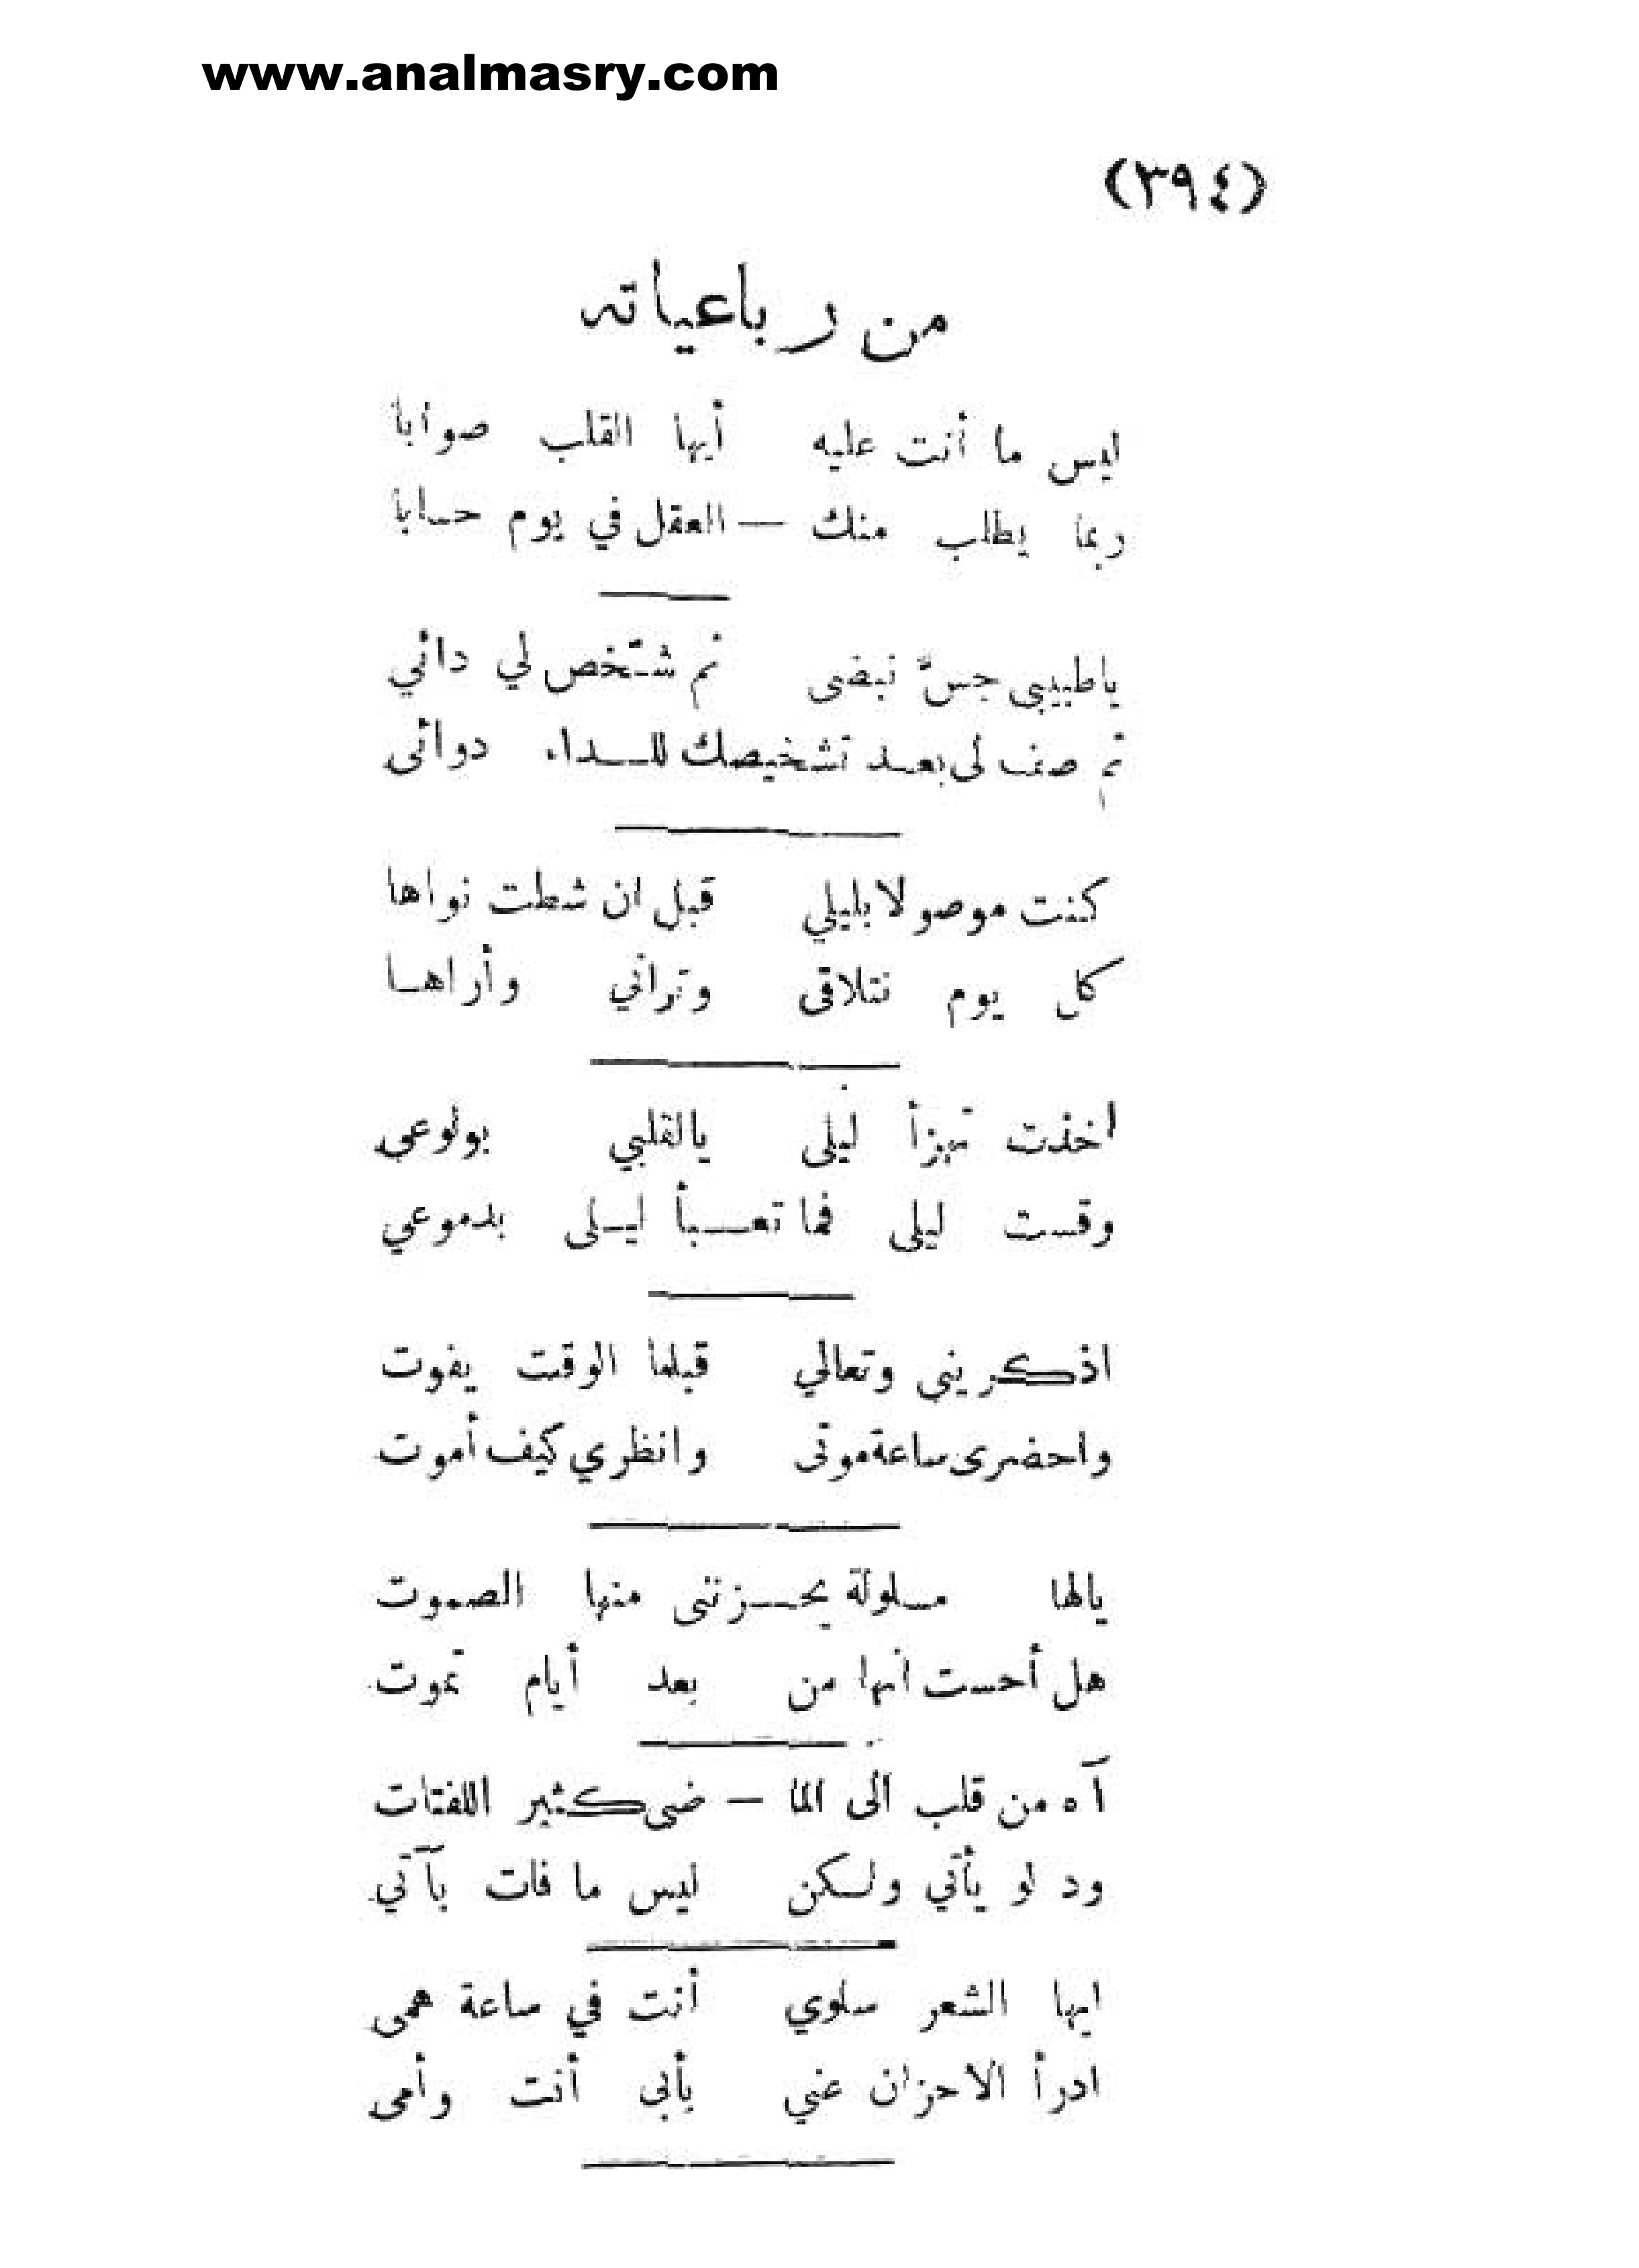 www.analmasry.com
(٣٩٤)
من رباعياته
ليس ما أنت عليه أيها القلب صوابا
ربما يطلب منك — العقل في يوم حسابا
ياطبيبى جسَّ نبضى ثم شخّص لي دائي
ثم صف لى بعد تشخيصك للداء دوائى
كنت موصولا بليلي قبل ان شطت نواها
كل يوم نتلاقى وتراني وأراها
اخذت تهزأ ليلى يالقلبي بولوعى
وقست ليلى فما تعبأ ليلى بدموعي
اذكريني وتعالي قبلما الوقت يفوت
واحضرى ساعة موتى وانظري كيف أموت
يالها مسلولة يحزننى منها الصموت
هل أحست انها من بعد أيام تموت
آه من قلب الى الما — ضى كثير اللفتات
ود لو يأتي ولكن ليس ما فات بآتي
ايها الشعر سلوي أنت في ساعة همى
ادرأ الاحزان عني بأبى أنت وأمى